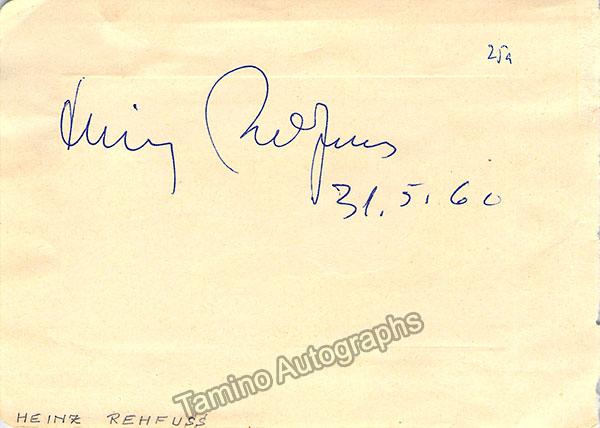 25a
Heinz Rehfuss
31.5.60
Tamino Autographs
HEINZ REHFUSS